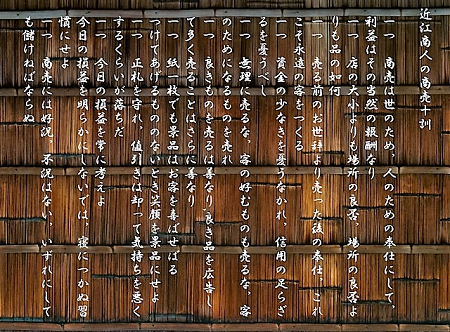 近江商人の商売十訓
一つ　商売は世のため、人のための奉仕にして、
利益はその当然の報酬なり
一つ　店の大小よりも場所の良否、場所の良否よ
りも品の如何
一つ　売る前のお世辞より売った後の奉仕、これ
こそ永遠の客をつくる
一つ　資金の少なきを憂うなかれ、信用の足らざ
るを憂うべし
一つ　無理に売るな、客の好むものも売るな、客
のためになるものを売れ
一つ　良きものを売るは善なり、良き品を広告し
て多く売ることはさらに善なり
一つ　紙一枚でも景品はお客を喜ばせばる
つけてあげるもののないとき笑顔を景品にせよ
一つ　正札を守れ、値引きは却って気持ちを悪く
するくらいが落ちだ
一つ　今日の損益を常に考えよ
今日の損益を明らかにしないでは、寝につかぬ習
慣にせよ
一つ　商売には好況、不況はない、いずれにして
も儲けねばならぬ